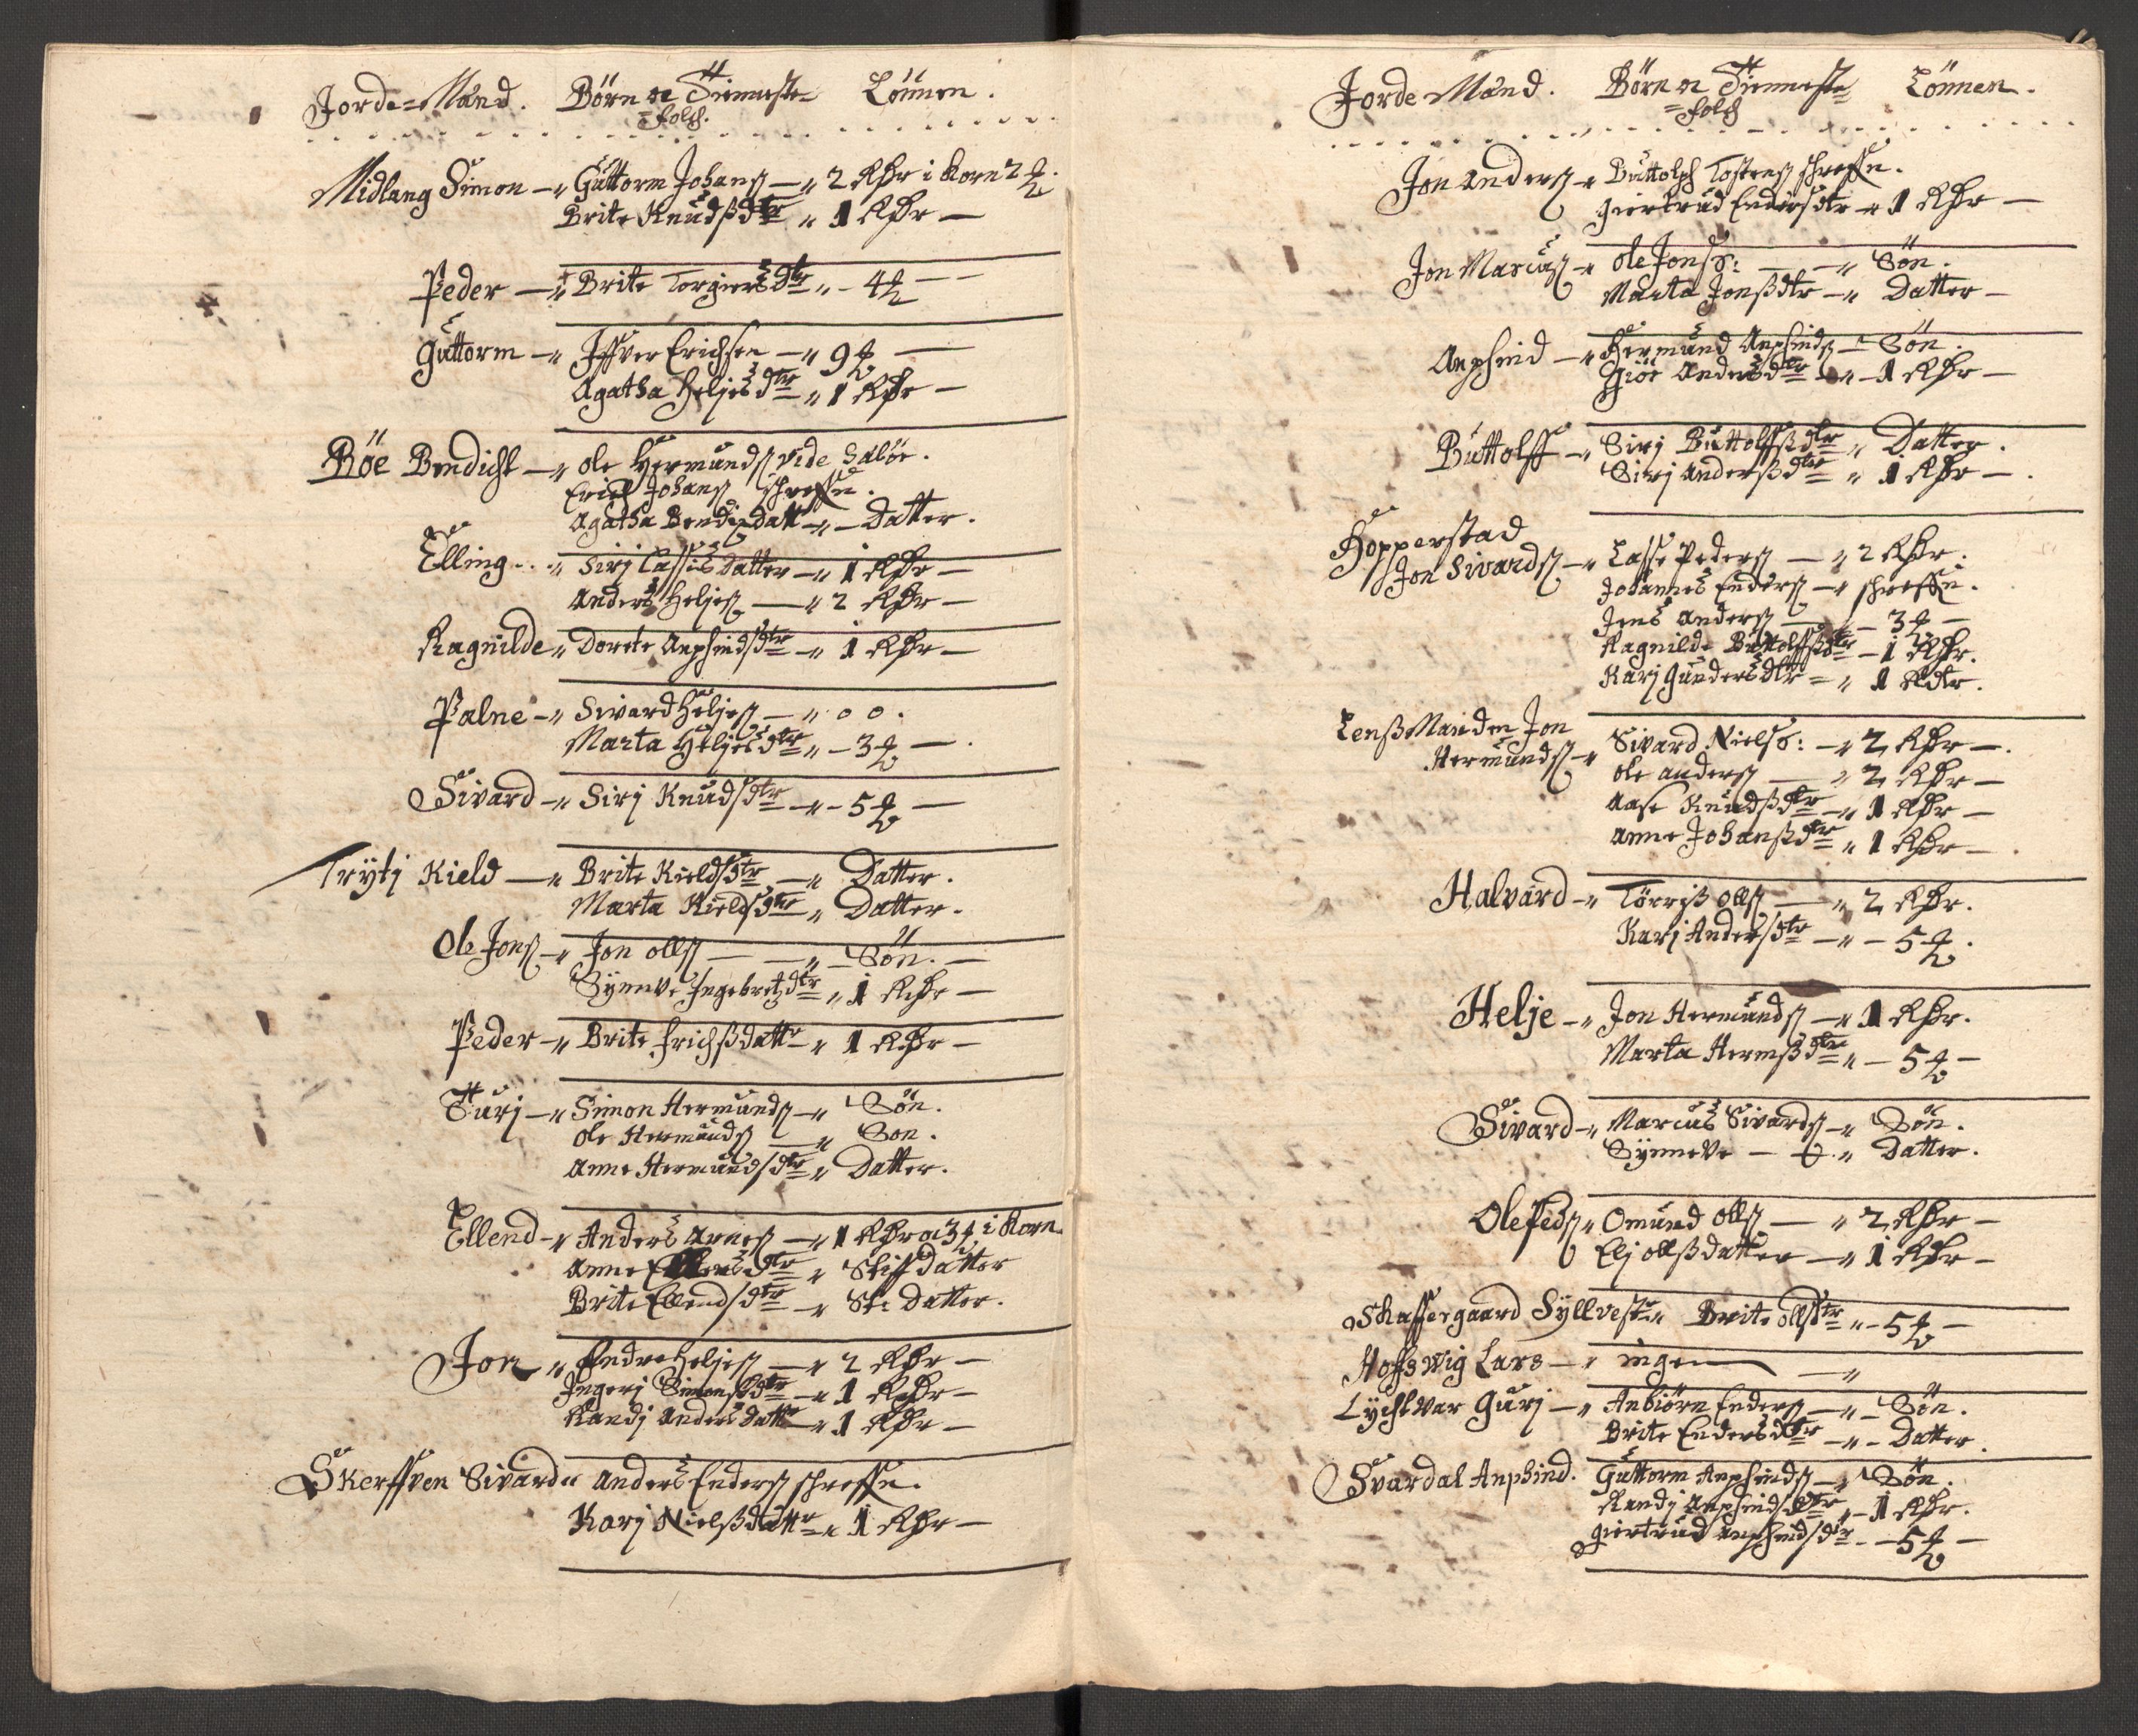 Jorde-Mand. Börn oc Tienneste Lönnen.
=folch.
Midlang Simon — Guttorm Johans — 2 Rdr i Korn 2 ꝑ.
Brite Knudsdtr 1 Rdr —
Peder — Brite Torgiersdtr - 4 —
Guttorm — Iffver Erichsen — 9 —
Agatha Heljesdtr 1 Rdr —
Böe Bendicht — Ole Hermunds vide Saböe.
Erich Johans
Agatha Bendixdatt — Datter.
Elling .. Sirj Lassis datter — 1 Rdr —
Anders Heljes — 2 Rdr —
Ragnilde Dorete Anphindsdtr — 1 Rdr —
Palne — Sivard Heljes — 0 0.
Marta Heljesdtr — 3 —.
Sivard — Sirj Knudsdtr — 5 —
Trytj Kield — Brite Kieldsdtr — Datter.
Marta Kieldsdtr Datter.
Ole Jons — Jon olls — — Sön. —
Synnve Ingebretzdtr 1 Rdr —
Peder — Brite Erichsdattr 1 Rdr —
Turj — Simon Hermunds — Sön.
Ole Hermunds — Son.
Anne Hermundsdtr Datter.
Ellend — Anders Arnes — 1 Rdr oc 3 i Korn.
Anne dtr Stiff datter
Brite Ellendsdtr St: Datter.
Jon Endre Heljes — 2 Rdr —
Ingerj Simensdtr — 1 Rdr —
Randj Anders datt — 1 Rdr —
Skerffven Sivard Anders Enders
Karj Nielsdattr 1 Rdr —
Jorde Mand. Börn oc Tienneste Lönnen.
=folch
Jon Anders — Buttolph Tostens
Giertrud Endersdtr — 1 Rdr —
Jon Marcus — Ole Jons: — Sön.
Marta Jonsdtr — Datter —
Anphind — Hermund Anphinds — Sön.
Giöe Andersdtr — 1 Rdr —
Buttolff — Sirj Buttolffsdtr Datter.
Sirj Andersdtr 1 Rdr —.
Hopperstad
Jon Sivards — Lasse Peders — 2 Rdr.
Johannes Enders —
Jens Anders — 3 —
Ragnilde Buttolffsdtr — 1 Rdr.
Karj Gundersdtr — 1 Rdr.
Lensmanden Jon
Hermunds — Sivard Niels: — 2 Rdr —.
Ole Anders — 2 Rdr —
Aase Knudsdtr — 1 Rdr —
Anne Johansdtr 1 Rdr —.
Halvard — Törris Olls — 2 Rdr.
Karj Andersdtr — 5.
Helje — Jon Hermunds — 1 Rdr.
Marta Hermsdtr — 5 —
Sivard — Marcus Sivards — Sön.
Synneve — Datter.
Ole Peds Omund Olls — 2 Rdr —
Elj ollsdatter — 1 Rdr —
Skaffergaard Syllvest Brite ollsdtr — 5 —
Hoffswig Lars — ingen —
Lychtvar Gurj — Anbiörn Enders — Sön.
Brite Endersdtr — Datter.
Svardal Anphind. Guttorm Anphinds — Sön.
Randj Anphindsdtr — 1 Rdr.
Giertrud Anphindsdtr — 5 —